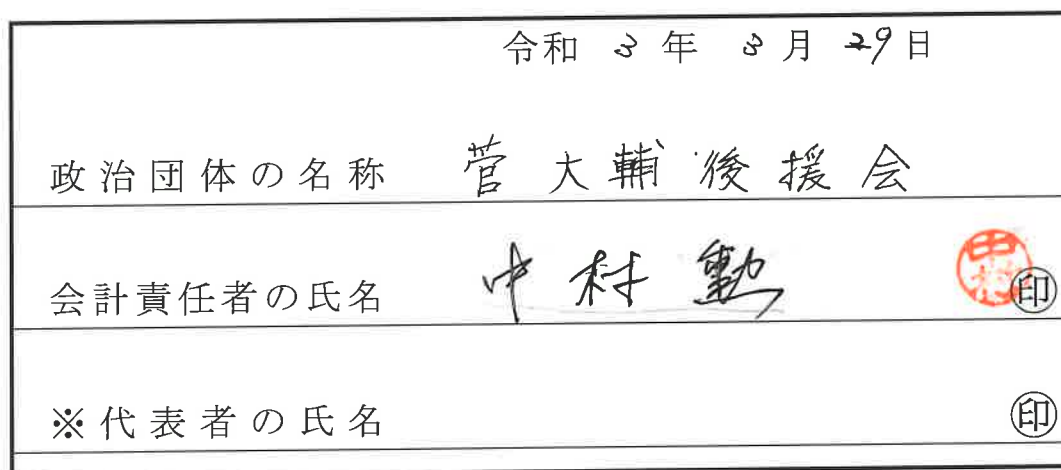 令和 3 年 3 月 29 日
政治団体の名称 菅大輔後援会
会計責任者の氏名 中村勲 中村 ㊞
※代表者の氏名 ㊞